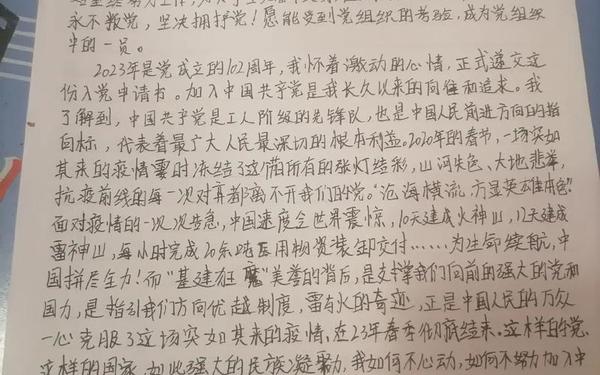 永不叛党，坚决拥护党！愿能受到党组织的考验，成为党组织
中的一员。
2023年是党成立的102周年，我怀着激动的心情，正式递交这
份入党申请书。加入中国共产党是我长久以来的向往和追求。我
了解到，中国共产党是工人阶级的先锋队，也是中国人民前进方向的指
向标，代表着最广大人民最深切的根本利益。2020年的春节，一场突如
其来的疫情霎时冻结了这个节所有的张灯结彩，山河失色、大地悲举，
抗疫前线的每一次对弈都离不开我们的党。"沧海横流，方显英雄本色"
面对疫情的一次次告急，中国速度令世界震惊，10天建成火神山，12天建成
雷神山，每小时完成20余吨医用物资装卸交付……为生命续航，中
国拼尽全力！而"基建狂魔"美誉的背后，是支撑我们向前的强大的党和
国力，是指引我们方向优越制度，雷与火的奇迹，正是中国人民的万众
一心克服了这场突如其来的疫情，在23年春季彻底结束。这样的党、
这样的国家，如此强大的民族凝聚力，我如何不心动，如何不努力加入中